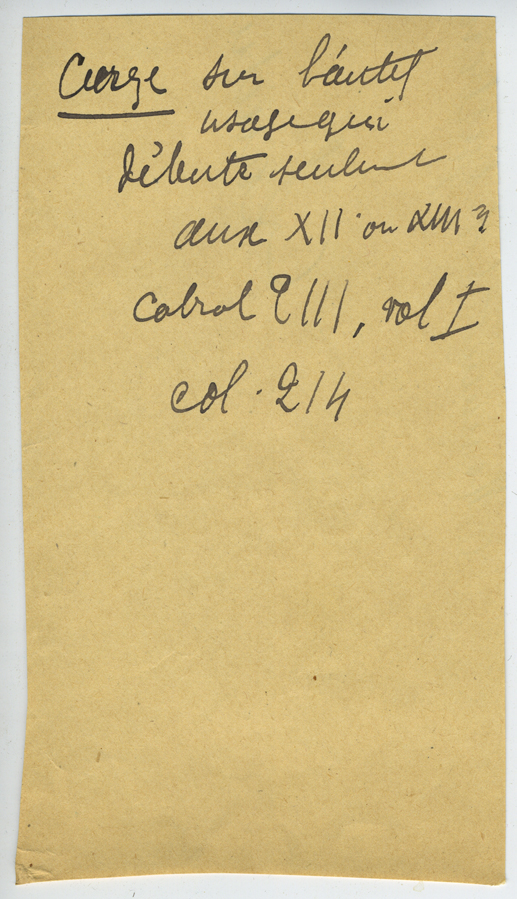 Cierge sur l'autel
usage qui
débute seulement
aux XII ou XIII
Cabrol III, vol I
col. 214